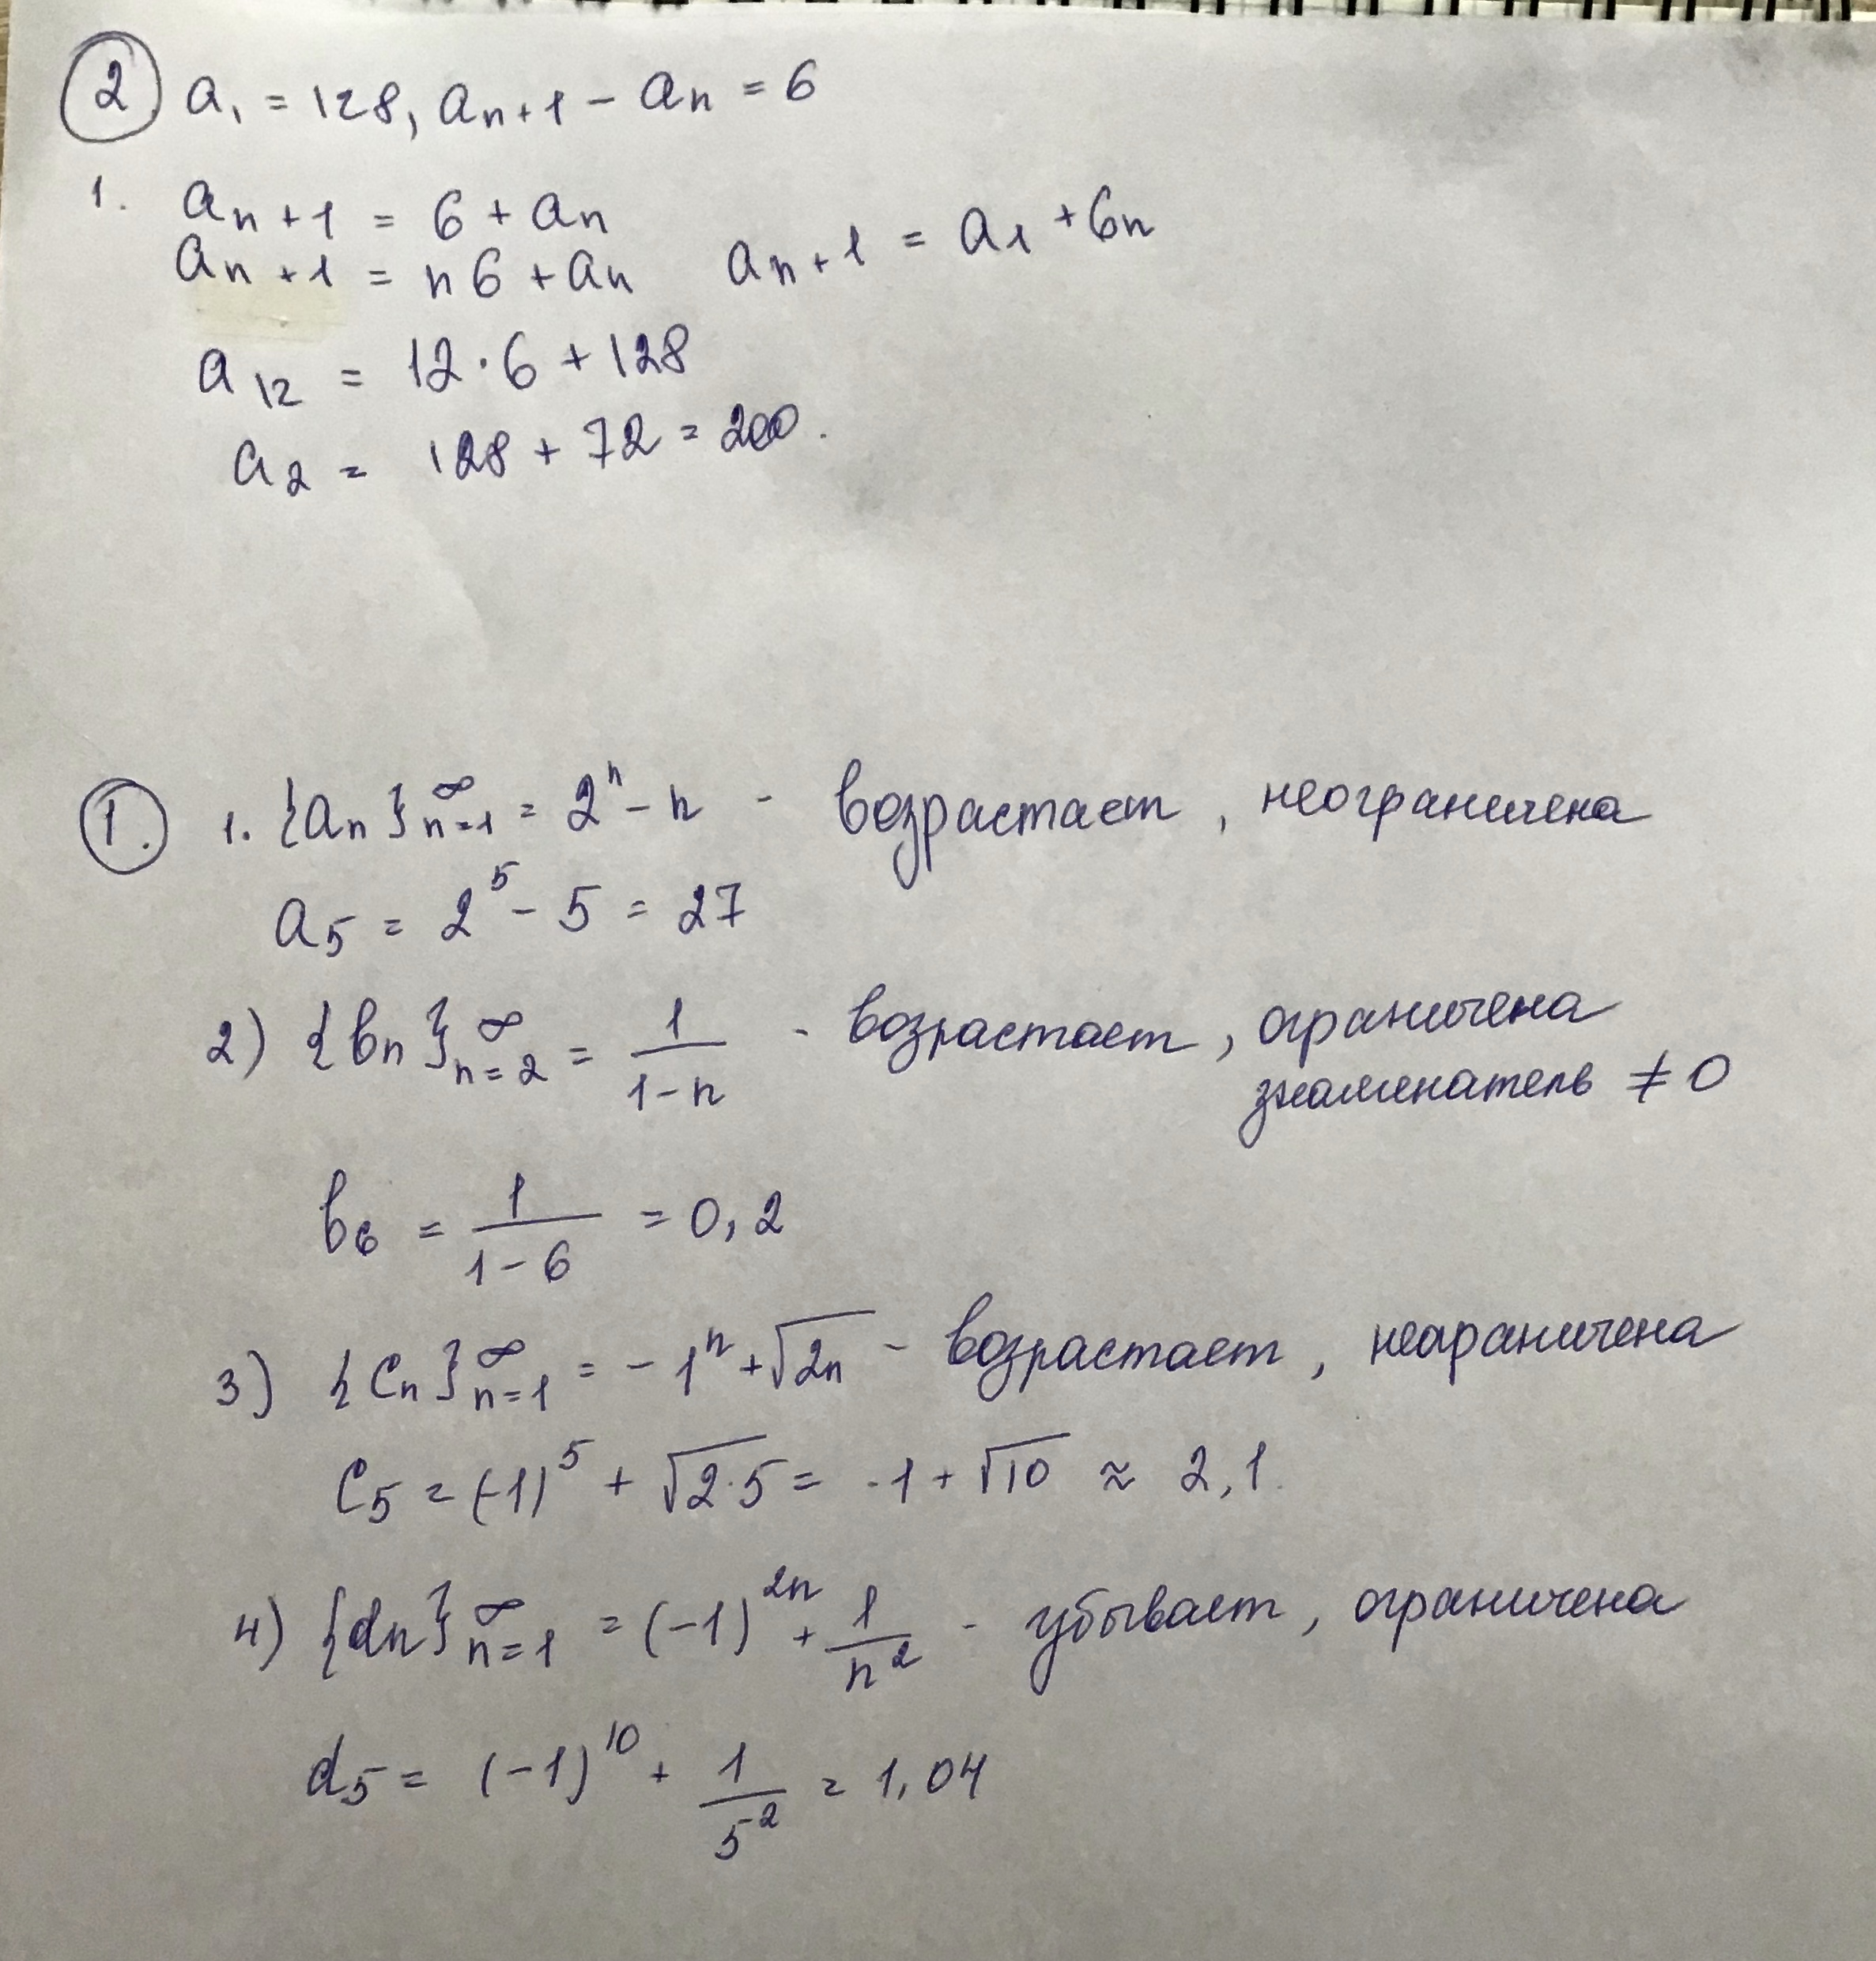 2 a₁ = 128, aₙ₊₁ − aₙ = 6
1. aₙ₊₁ = 6 + aₙ
aₙ₊₁ = n6 + aₙ aₙ₊₁ = a₁ + 6n
a₁₂ = 12 · 6 + 128
a₂ = 128 + 72 = 200.
1. 1. {aₙ}∞ₙ₌₁ = 2ⁿ − n - возрастает, неограничена
a₅ = 2⁵ − 5 = 27
2) {bₙ}∞ₙ₌₂ = 1/(1−n) - возрастает, ограничена
знаменатель ≠ 0
b₆ = 1/(1−6) = 0,2
3) {cₙ}∞ₙ₌₁ = −1ⁿ + √2n - возрастает, неограничена
c₅ = (−1)⁵ + √2·5 = -1 + √10 ≈ 2,1.
4) {dₙ}∞ₙ₌₁ = (−1)²ⁿ + 1/n² - убывает, ограничена
d₅ = (−1)¹⁰ + 1/5² = 1,04